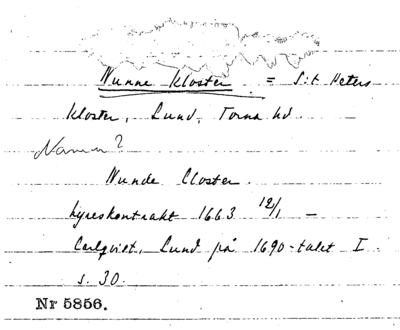 Nunne Kloster = S:t Peters
kloster, Lund, Torna hd.
Namn?
Nunde Closter.
hyreskontrakt 1663 12/1 –
Carlquist, Lund på 1690-talet I
s. 30.
Nr 5856.